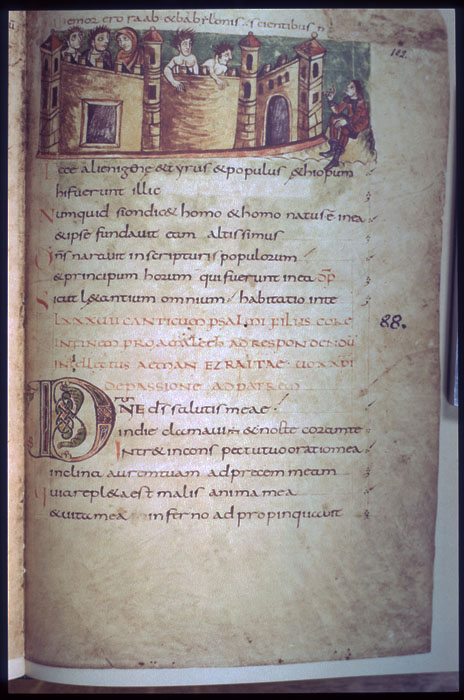 Memor ero raab & babylonis scientibus
112.
Ecce alienigene & tyrus & populus &hiopum
hi fuerunt illic
Numquid sion dic& homo & homo natus ē in ea
& ipse fundavit eam altissimus
Dn̄s narravit in scripturis populorum
& principum horum qui fuerunt in ea
Sicut l&antium omnium habitatio in te
88.
LXXXVII CANTICUM PSALMI FILIIS CORE
IN FINEM PRO AD RESPONDENDŪ
INTELLECTUS AEMAN EZRAITAE
DE PASSIONE AD PATREM
DNE ds salutis meae
in die clamavi & nocte coram te
Intr& in conspectu tuo oratio mea
inclina aurem tuam ad precem meam
Quia repl&a est malis anima mea
& vita mea in inferno adpropinquavit